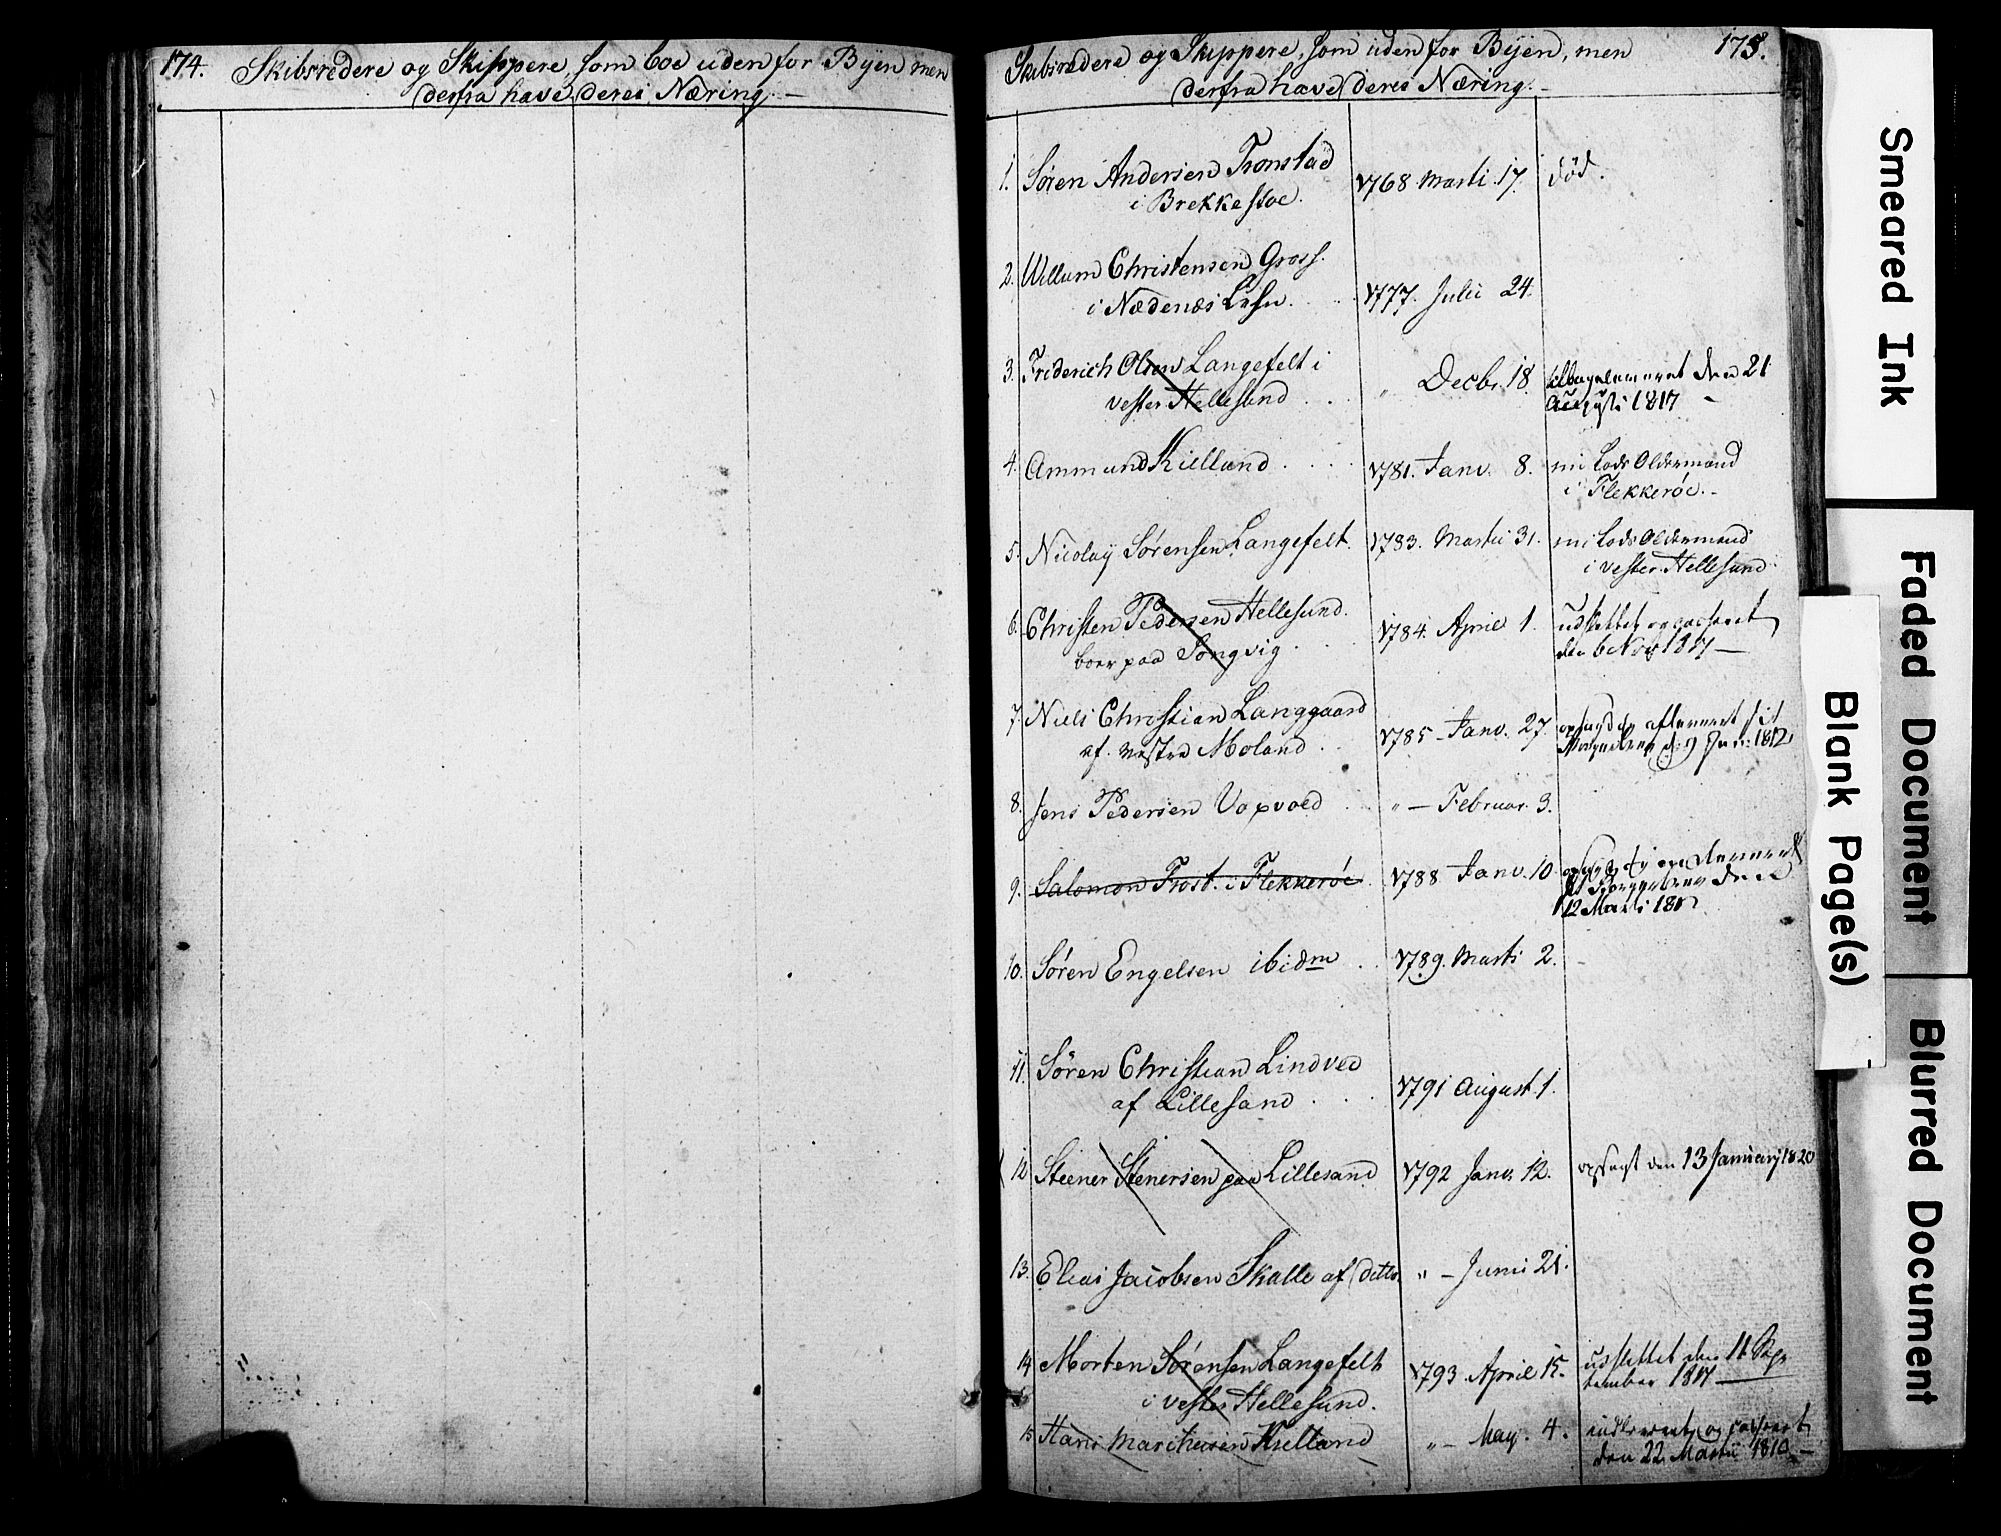 174.
Skibsredere og Skippere, som boe uden for Byen men
derfra have deres Næring.
Skibsredere og Skippere, som uden for Byen, men
175.
derfra have deres Næring.
1. Søren Andersen Tronstad 1768 Marti 17. død.
i Brekkestøe.
2. Willum Christensen Gross.
i Nædenæs Lehn. 1777. Julii 24.
3. Friderich Olsen Langefelt i " Decbr. 18. tilbageleveret den 21
vester Hellesund August 1817
4. Ammund Kielland 1781. Janv. 8. nu Lods Oldermand
i Flekkerøe.
5. Nicolay Sørensen Langefelt. 1783. Martii 31. nu Lods Oldermand
i vester Hellesund
6. Christen Pedersen Hellesund. 1784. April 1. udslettet og
boer paa Songvig. den 6 Nov 1817
7. Niels Christian Langgaard 1785 Janv. 27. opsagd og afleveret sit
af Vestre Moland 1812
8. Jens Pedersen Voxvold " Februar. 3.
9. Salomon Trost. i Flekkerøe 1788 Janv. 10
12 Marti
10. Søren Engelsen ibidm 1789. Marti 2.
11. Søren Christian Lindved
af Lillesand 1791 August 1.
12 Steener Stenersen paa Lillesand 1792 Janv. 12. opsagt den 13 January 1820
13. Elias Jacobsen Skalle af ditto " Junii 21.
14 Morten Sørensen Langefelt 1793 April 15. udslettet den 11 Sep
i vester Hellesund. tember 1817
15 Hans Marcheusen Kielland " May. 4. indleveret og
den 22 Martii 1810
Smeared Ink
Faded Document
Blank Page(s)
Blurred Document